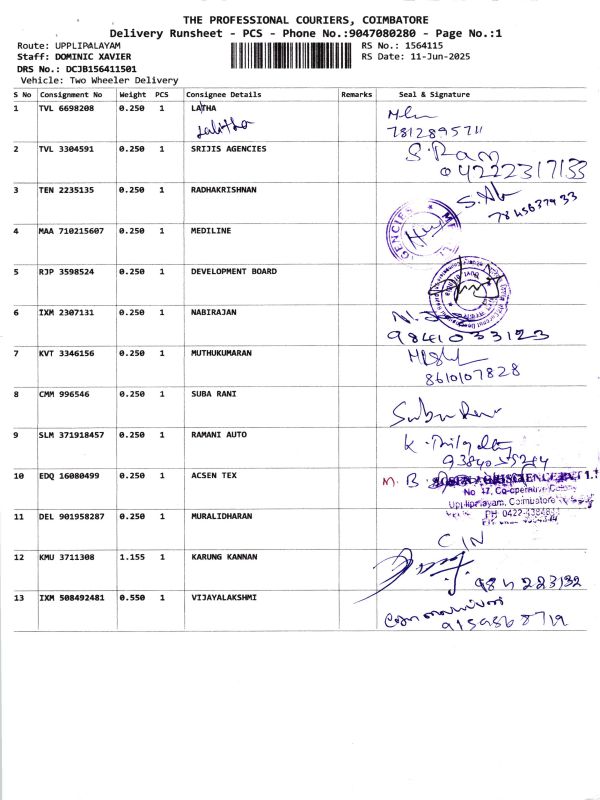 THE PROFESSIONAL COURIERS, COIMBATORE
Delivery Runsheet - PCS - Phone No.:9047080280 - Page No.:1
Route: UPPLIPALAYAM RS No.: 1564115
Staff: DOMINIC XAVIER RS Date: 11-Jun-2025
DRS No.: DCJB156411501
Vehicle: Two Wheeler Delivery
S No Consignment No Weight PCS Consignee Details Remarks Seal & Signature
1 TVL 6698208 0.250 1 LATHA
Lalitha 7812895711
2 TVL 3304591 0.250 1 SRIJIS AGENCIES S. Ram
04222317133
3 TEN 2235135 0.250 1 RADHAKRISHNAN
4 MAA 710215607 0.250 1 MEDILINE
5 RJP 3598524 0.250 1 DEVELOPMENT BOARD
6 IXM 2307131 0.250 1 NABIRAJAN
9841033123
7 KVT 3346156 0.250 1 MUTHUKUMARAN
8610107828
8 CMM 996546 0.250 1 SUBA RANI
9 SLM 371918457 0.250 1 RAMANI AUTO
10 EDQ 16080499 0.250 1 ACSEN TEX
No 17, Co-operative Colony
Uppilipalayam, Coimbatore
11 DEL 901958287 0.250 1 MURALIDHARAN
CIN
12 KMU 3711308 1.155 1 KARUNG KANNAN
13 IXM 508492481 0.550 1 VIJAYALAKSHMI